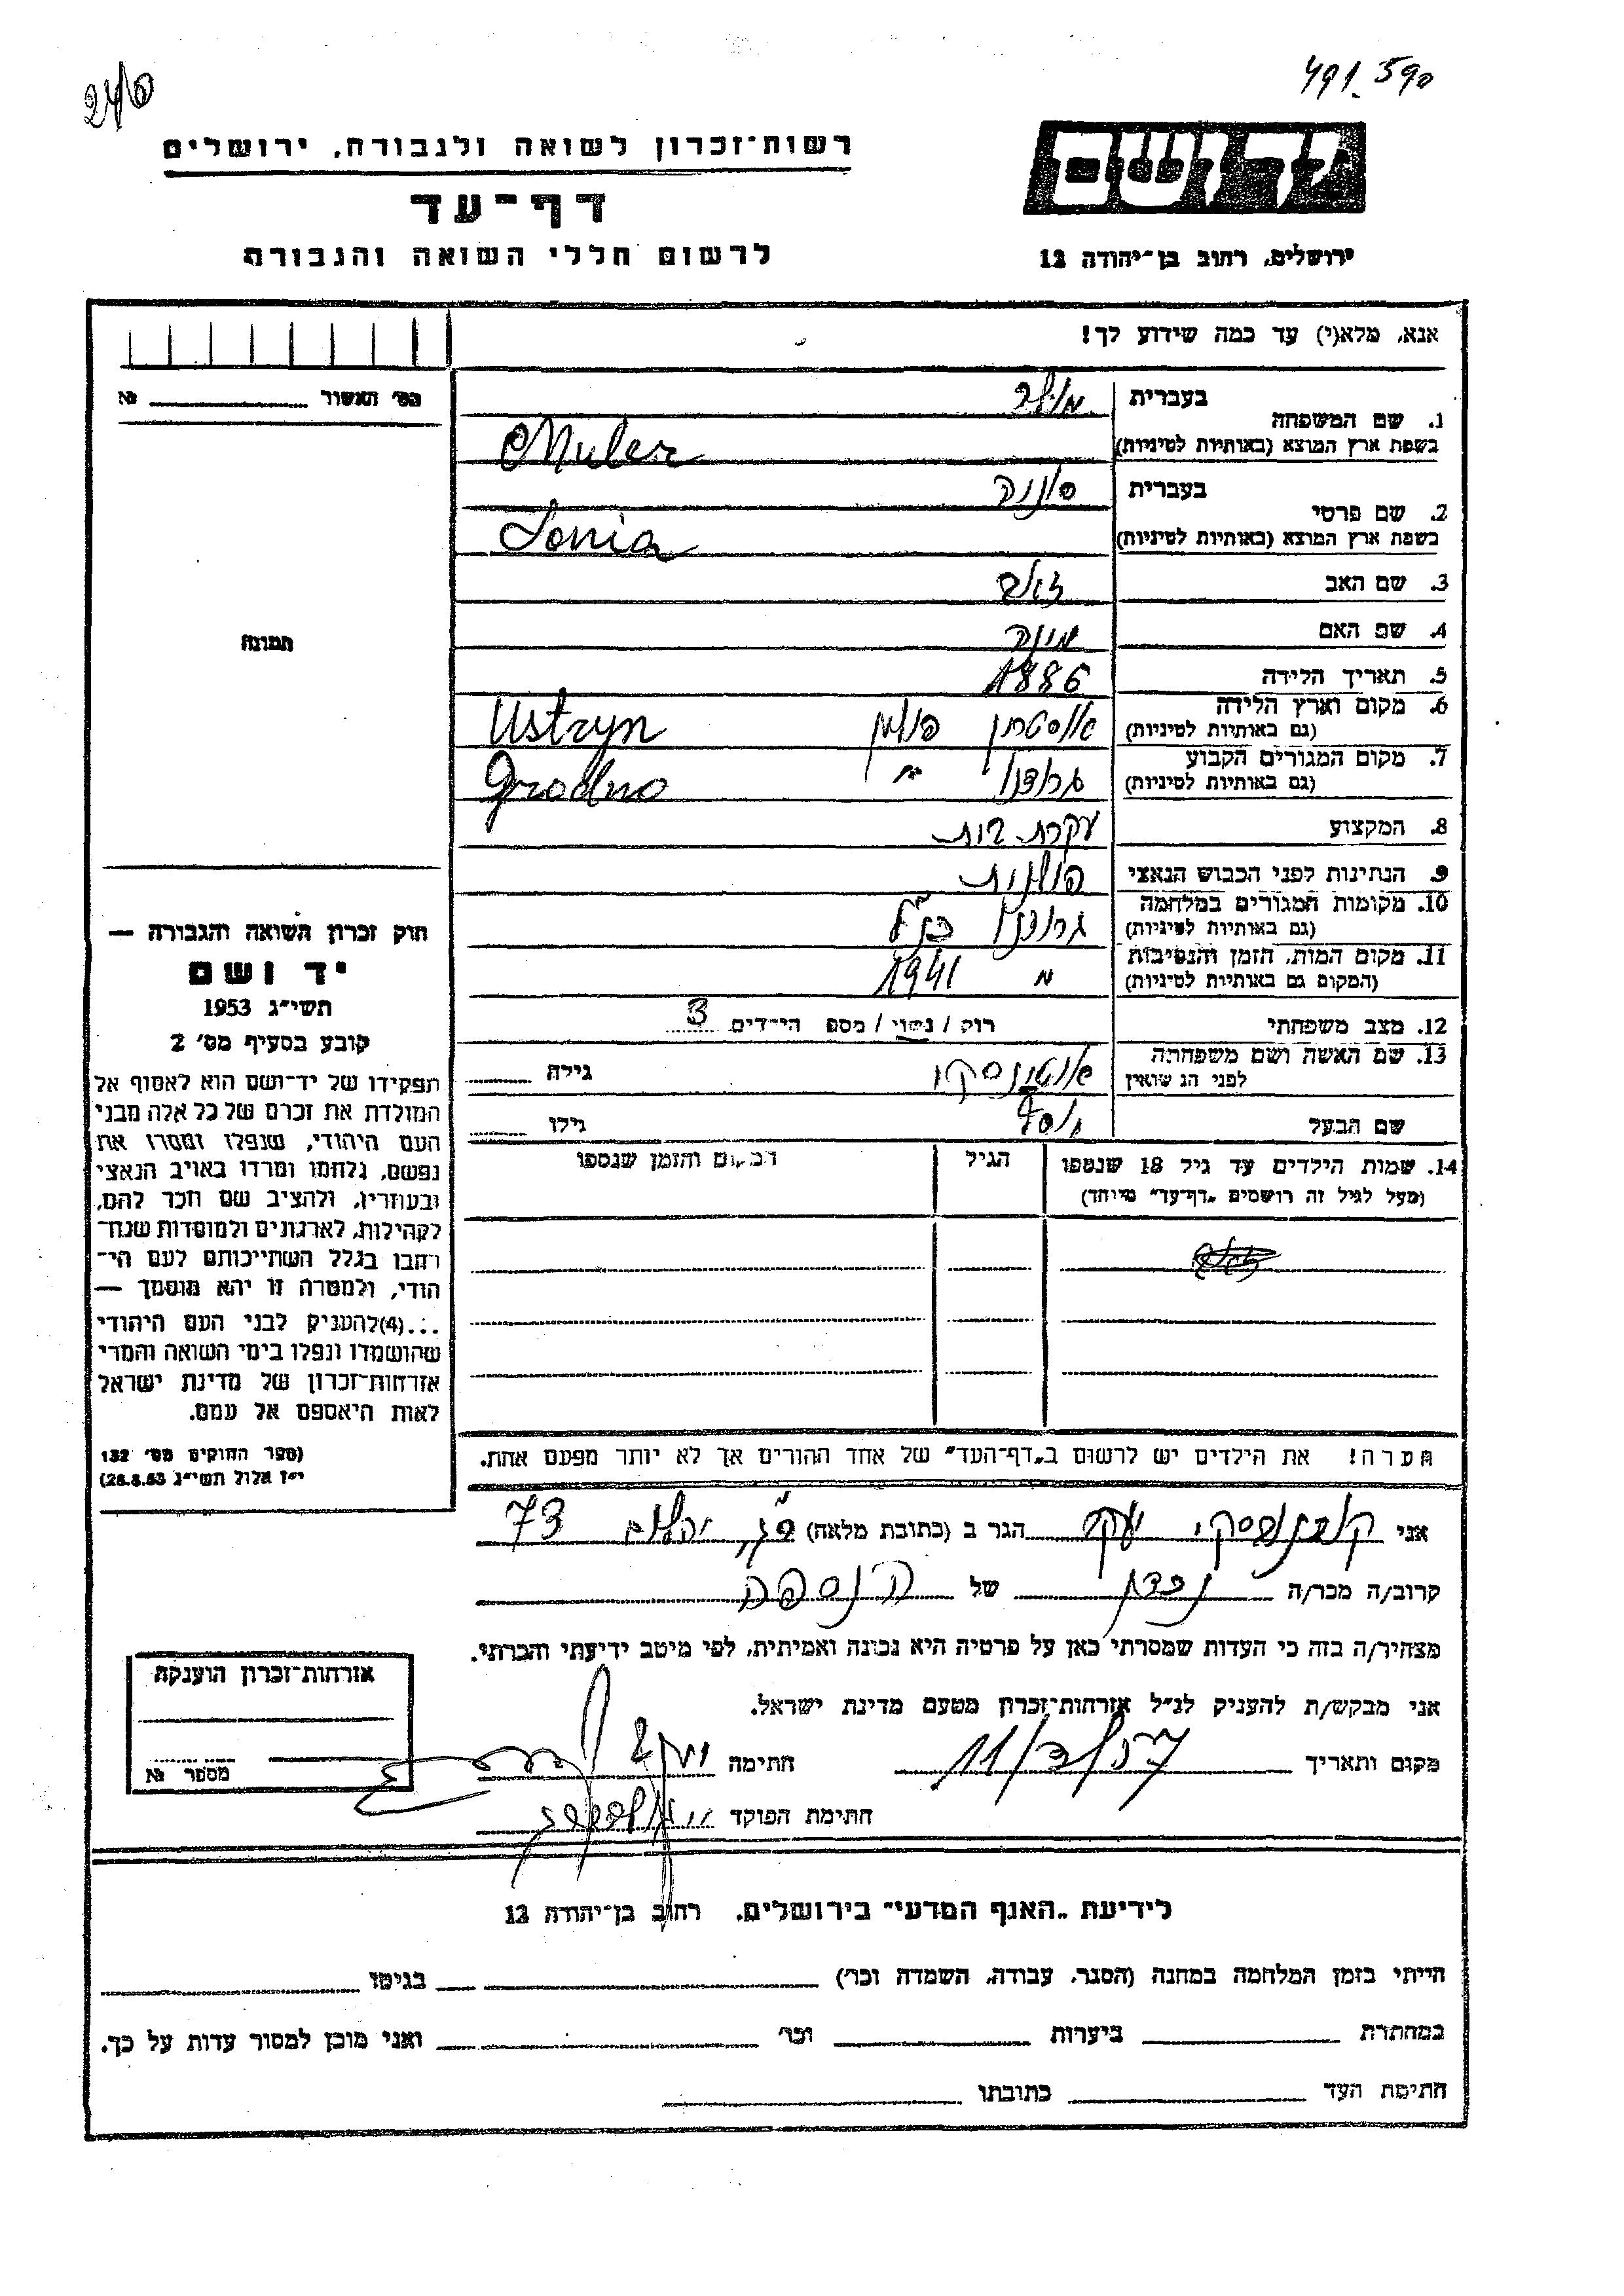 491.590
246
ידושם
רשות־זכרון לשואה ולגבורה, ירושלים
דף־עד
לרשום חללי השואה והגבורה
ירושלים, רחוב בן־יהודה 12
אנא, מלא(י) עד כמה שידוע לך!
מס׳ האשור №
1. שם המשפחה בעברית מולר
בשפת ארץ המוצא (באותיות לטיניות) Muler
2. שם פרטי בעברית סוניה
בשפת ארץ המוצא (באותיות לטיניות) Sonia
3. שם האב זאב
4. שם האם
5. תאריך הלידה 1886
6. מקום וארץ הלידה (גם באותיות לטיניות) אוסטרין פולין Ustryn
7. מקום המגורים הקבוע (גם באותיות לטיניות) גרודנו " Grodno
8. המקצוע עקרת בית
9. הנתינות לפני הכבוש הנאצי פולנית
10. מקומות המגורים במלחמה (גם באותיות לטיניות) גרודנו כנ"ל
11. מקום המות, הזמן והנסיבות (המקום גם באותיות לטיניות) 1941
12. מצב משפחתי רוק / נשוי / מספר הילדים 3
13. שם האשה ושם משפחתה לפני הנשואין גילה
שם הבעל יוסף גילו
14. שמות הילדים עד גיל 18 שנספו (מעל לגיל זה רושמים „דף־עד״ מיוחד) הגיל המקום והזמן שנספו
תמונה
חוק זכרון השואה והגבורה —
יד ושם
תשי״ג 1953
קובע בסעיף מס׳ 2
תפקידו של יד־ושם הוא לאסוף אל
המולדת את זכרם של כל אלה מבני
העם היהודי, שנפלו ומסרו את
נפשם, נלחמו ומרדו באויב הנאצי
ובעוזריו, ולהציב שם וזכר להם,
לקהילות, לארגונים ולמוסדות שנח־
רבו בגלל השתייכותם לעם הי־
הודי, ולמטרה זו יהא מוסמך —
...(4)להעניק לבני העם היהודי
שהושמדו ונפלו בימי השואה והמרי
אזרחות־זכרון של מדינת ישראל
לאות היאספם אל עמם.
(ספר החוקים מס׳ 132
י״ז אלול תשי״ג 28.8.53)
הערה! את הילדים יש לרשום ב„דף־העד״ של אחד ההורים אך לא יותר מפעם אחת.
אני יעקב הגר ב (כתובת מלאה) 73
קרוב/ה מכר/ה נכדן של הנספה
מצהיר/ה בזה כי העדות שמסרתי כאן על פרטיה היא נכונה ואמיתית, לפי מיטב ידיעתי והכרתי.
אני מבקש/ת להעניק לנ״ל אזרחות־זכרון מטעם מדינת ישראל.
מקום ותאריך חתימה
חתימת הפוקד
אזרחות־זכרון הוענקה
מספר №
לידיעת „האגף המדעי״ בירושלים, רחוב בן־יהודה 12
הייתי בזמן המלחמה במחנה (הסגר, עבודה, השמדה וכו׳) בגיטו
במחתרת ביערות וכו׳ ואני מוכן למסור עדות על כך.
חתימת העד כתובתו